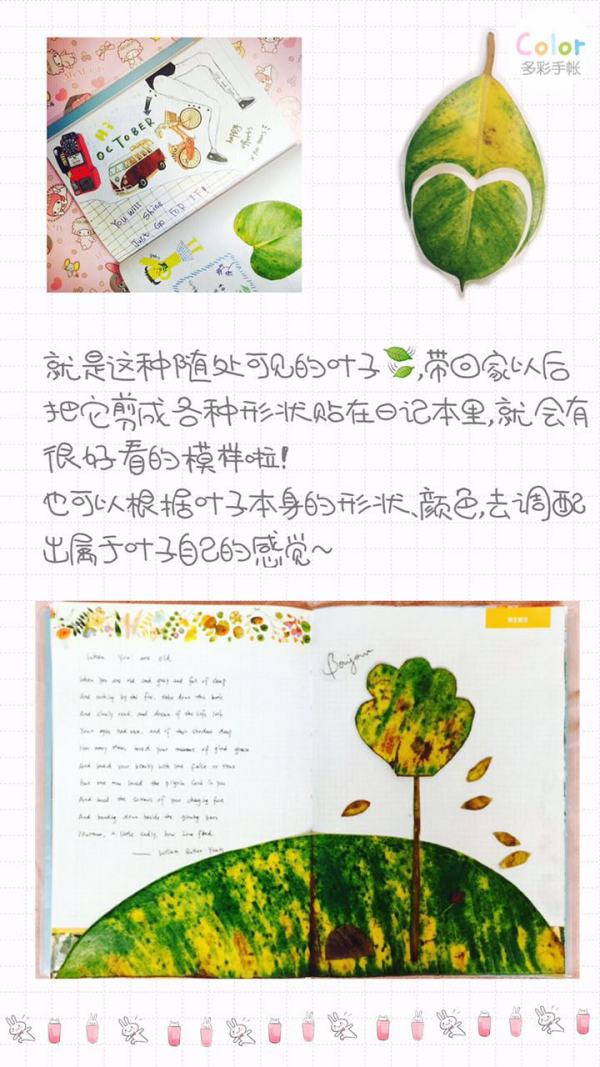 Color
多彩手帐
Hi
OCTOBER
happy
You will
Shine
Just GO FOR IT!
就是这种随处可见的叶子,带回家以后
把它剪成各种形状贴在日记本里,就会有
很好看的模样啦!
也可以根据叶子本身的形状、颜色,去调配
出属于叶子自己的感觉~
MEMO
Bonjour
When You are old
When you are old and grey and full of sleep
And nodding by the fire, take down this book
And slowly read, and dream of the soft look
Your eyes had once, and of their shadows deep
How many loved your moments of glad grace
And loved your beauty with love false or true
But one man loved the pilgrim soul in you
And loved the sorrows of your changing face
And bending down beside the glowing bars
Murmur, a little sadly, how love fled
—— William Butler Yeats